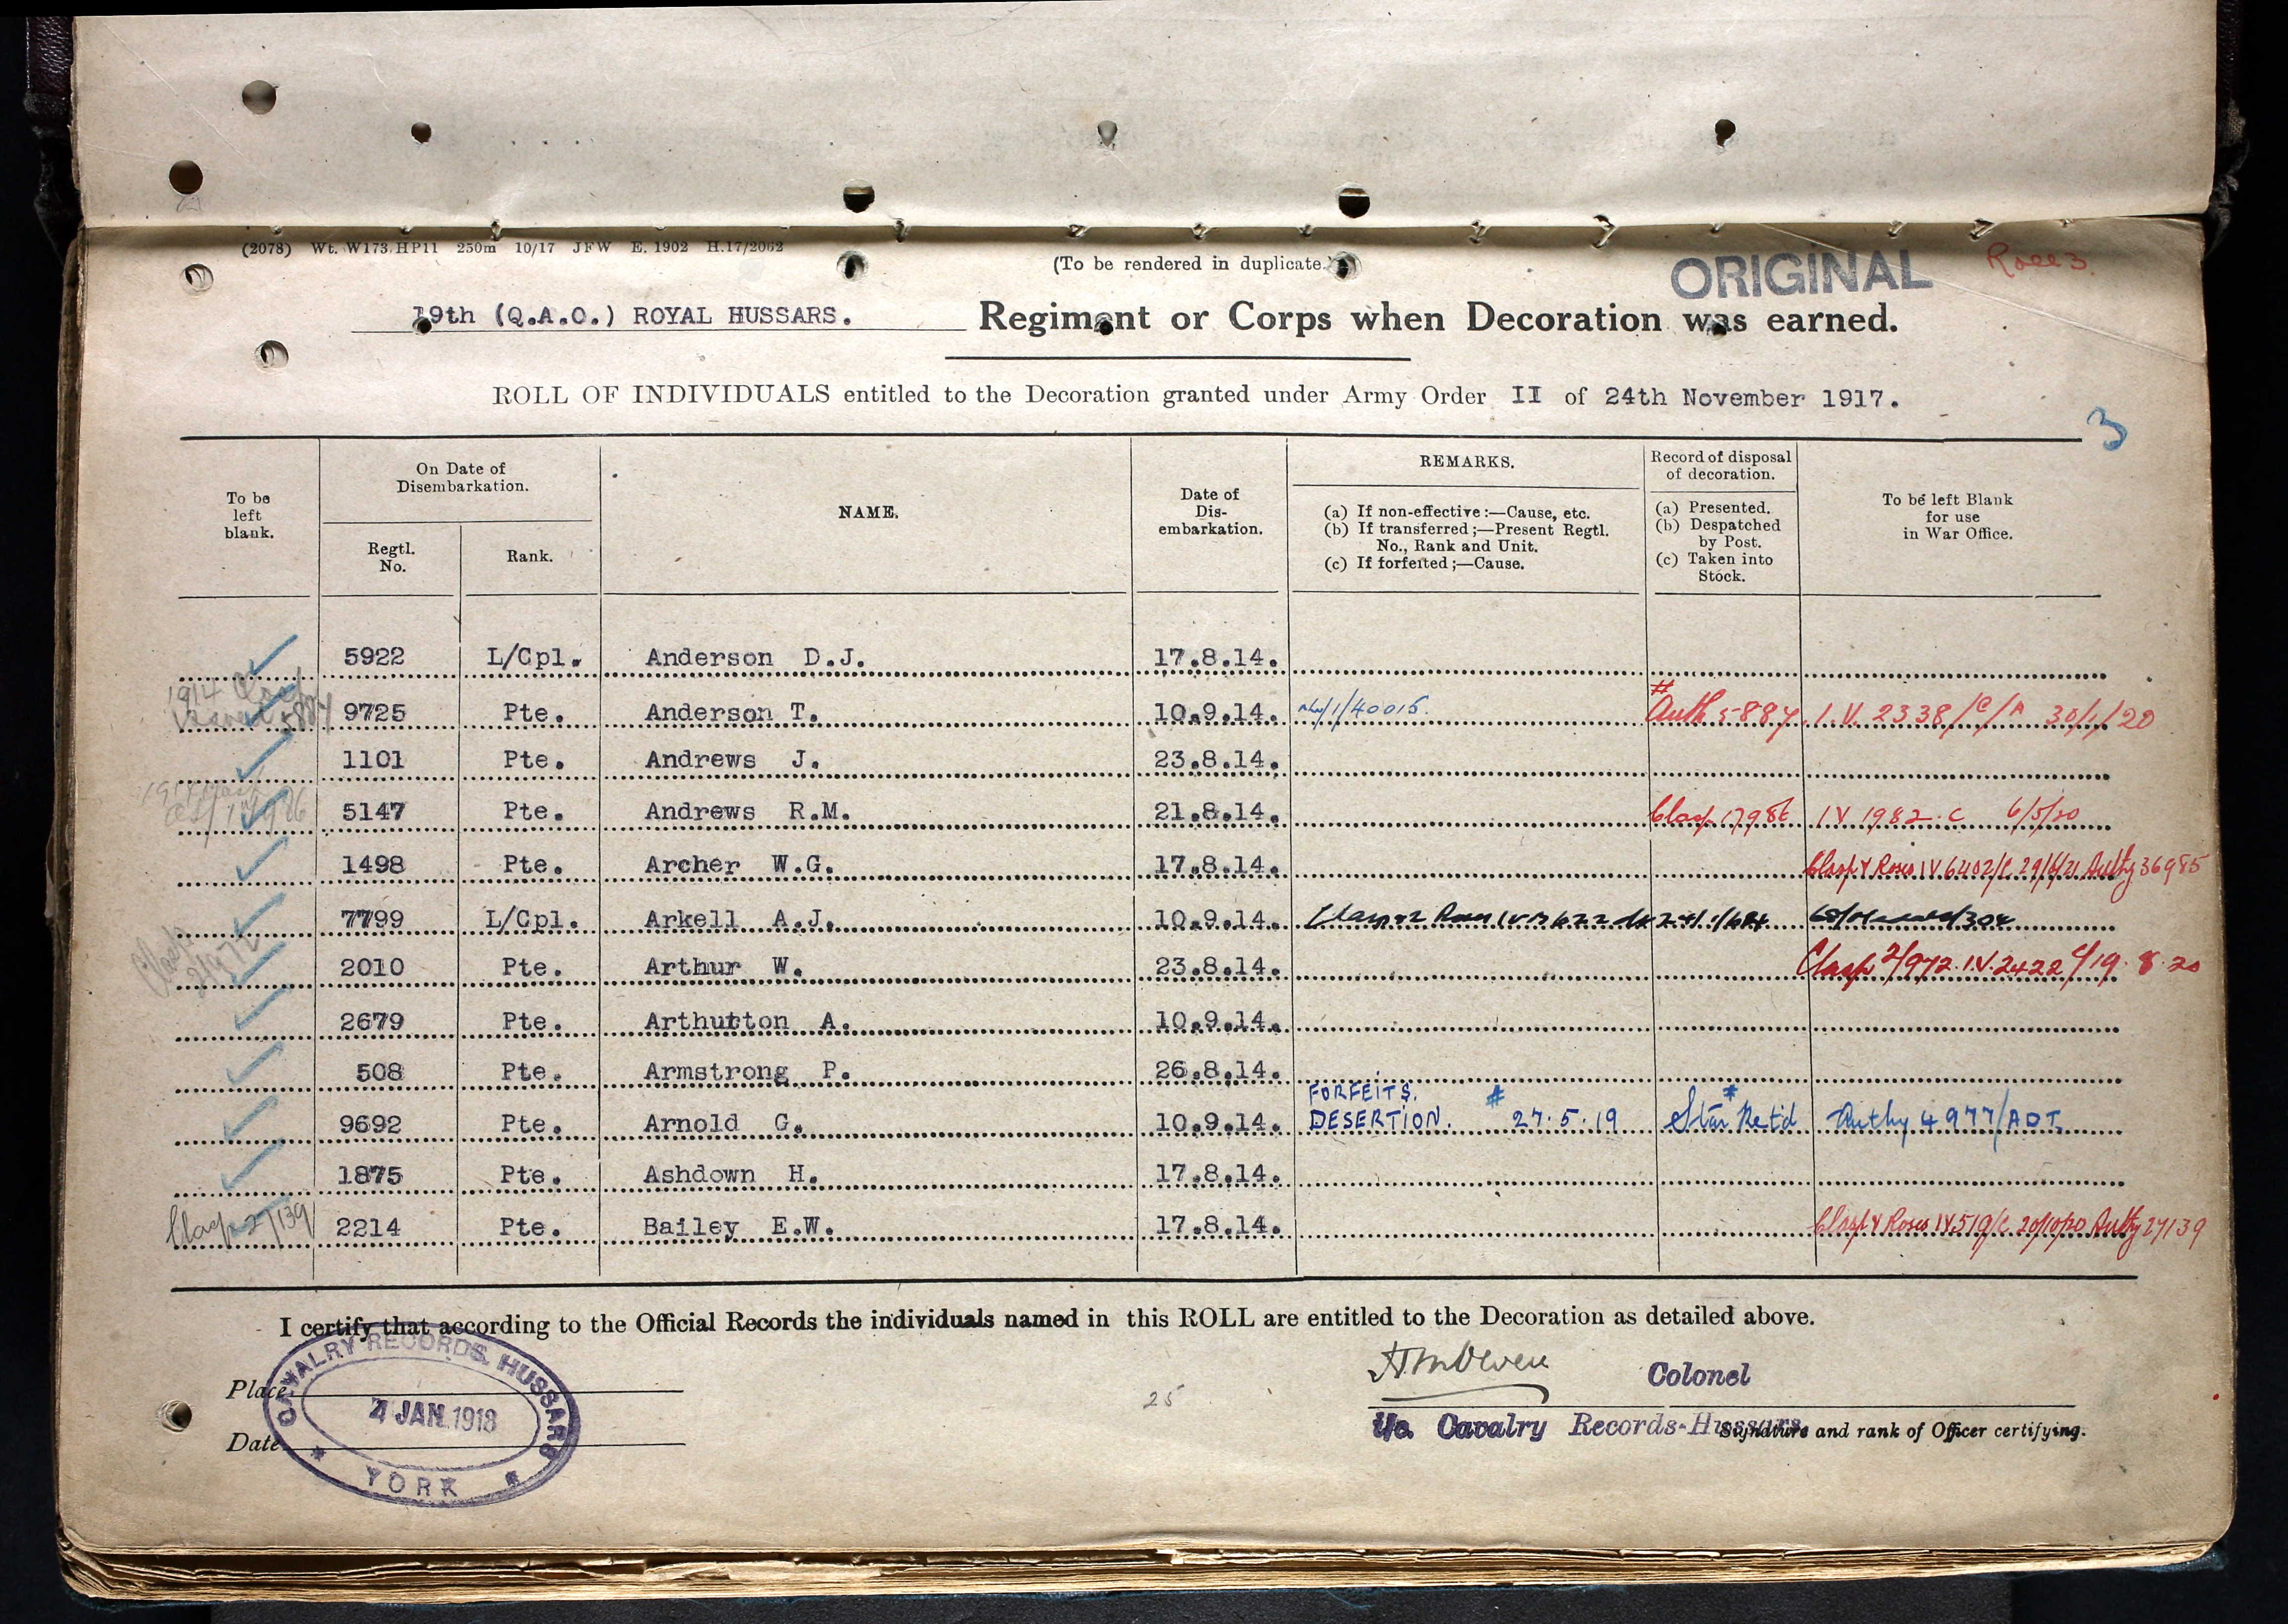 (2078) Wt. W173/HP11 250m 10/17 JFW E. 1902 H.17/2062
(To be rendered in duplicate.)
ORIGINAL
Roll 3.
19th (Q.A.O.) ROYAL HUSSARS. Regiment or Corps when Decoration was earned.
ROLL OF INDIVIDUALS entitled to the Decoration granted under Army Order II of 24th November 1917.
3
To be left blank.
On Date of Disembarkation.
Regtl. No.
Rank.
NAME.
Date of Dis-embarkation.
REMARKS.
(a) If non-effective:—Cause, etc.
(b) If transferred;—Present Regtl. No., Rank and Unit.
(c) If forfeited;—Cause.
Record of disposal of decoration.
(a) Presented.
(b) Despatched by Post.
(c) Taken into Stock.
To be left Blank for use in War Office.
5922 L/Cpl. Anderson D.J. 17.8.14.
1914 5884 9725 Pte. Anderson T. 10.9.14. /1/40015. # Auth 5884 I.V. 2338/C/A 30/1/20
1101 Pte. Andrews J. 23.8.14.
5147 Pte. Andrews R.M. 21.8.14. Clasp 1798E IV 1982.C 6/5/20
1498 Pte. Archer W.G. 17.8.14. Clasp & Roses IV 6402/C 29/6/21 Authy 36985
7799 L/Cpl. Arkell A.J. 10.9.14.
Clasp 2/972 2010 Pte. Arthur W. 23.8.14. Clasp 2/972.I.V.2422 C/19.8.20
2679 Pte. Arthurton A. 10.9.14.
508 Pte. Armstrong P. 26.8.14.
9692 Pte. Arnold G. 10.9.14. FORFEITS. DESERTION. # 27.5.19 # Star Ret'd Authy 4977/ADT.
1875 Pte. Ashdown H. 17.8.14.
Clasp 2/139 2214 Pte. Bailey E.W. 17.8.14. Clasp & Roses IV 519/C 20/10/20 Authy 2/139
I certify that according to the Official Records the individuals named in this ROLL are entitled to the Decoration as detailed above.
Place
Date
CAVALRY RECORDS, HUSSARS
4 JAN. 1918
* YORK *
25
Colonel
i/c. Cavalry Records-Hussars
Signature and rank of Officer certifying.